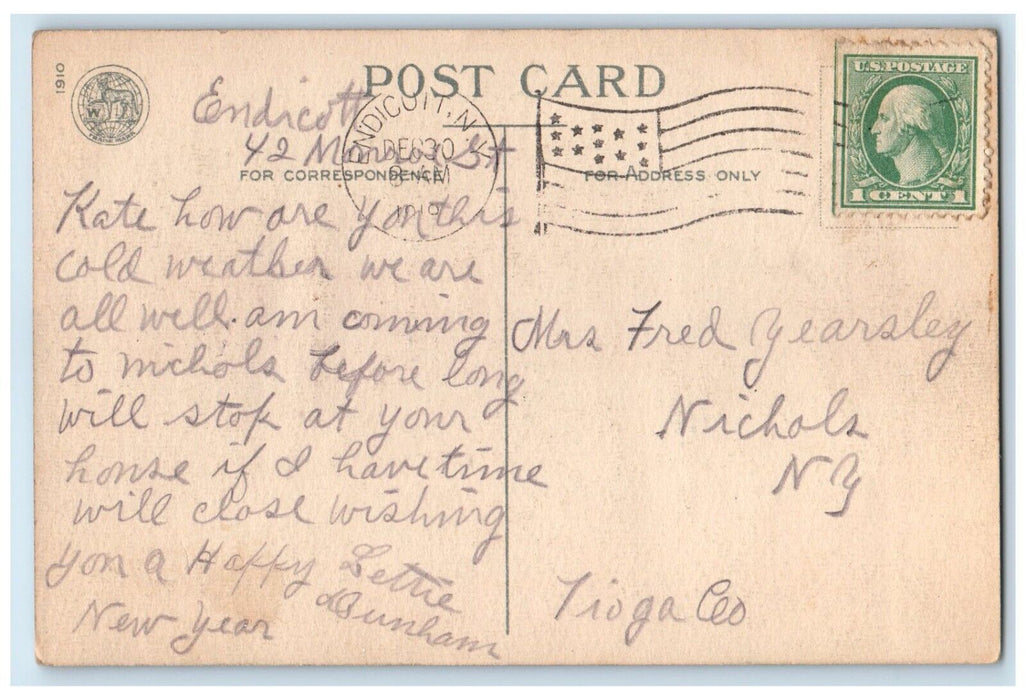 1910
POST CARD
Endicott
42 St
ENDICOTT, N.Y.
DEC 30
8 AM
1919
U.S. POSTAGE
1 CENT 1
FOR CORRESPONDENCE
FOR ADDRESS ONLY
Kate how are you this
cold weather we are
all well. am coming
to nichols before long
will stop at your
house if I have time
will close wishing
you a Happy
New Year
Lettie
Dunham
Mrs Fred Yearsley
Nichols
NY
Tioga Co